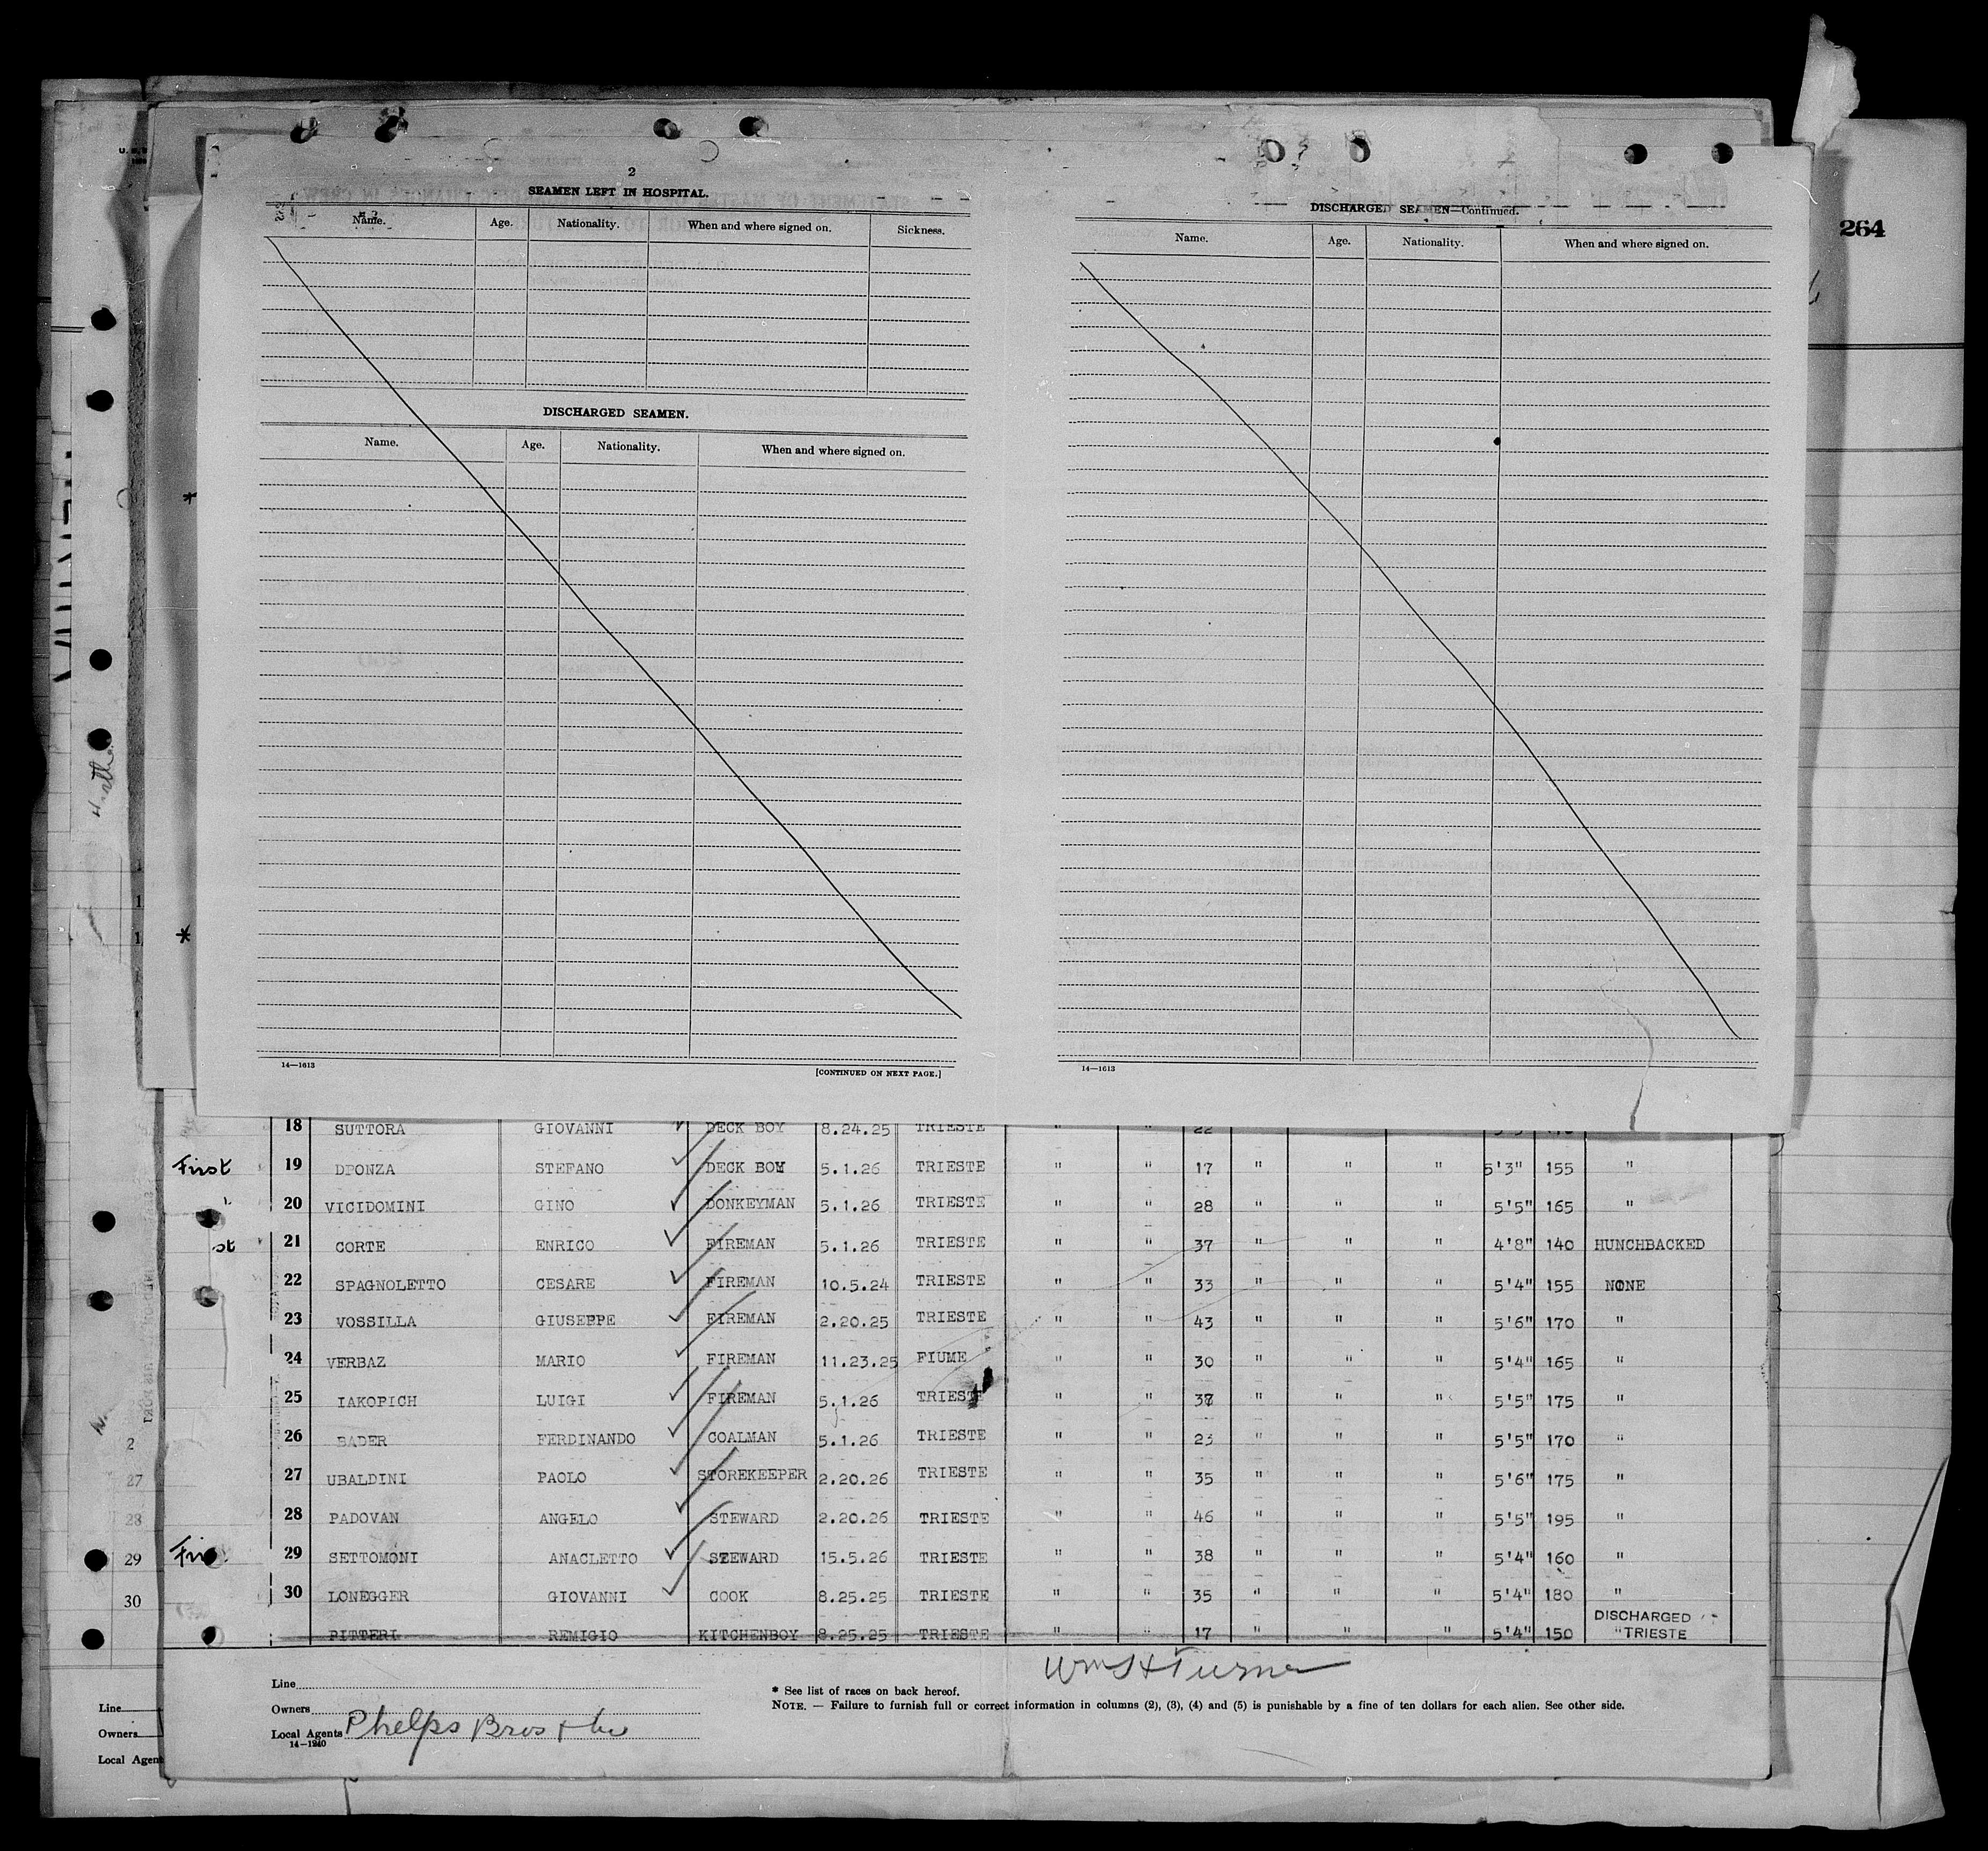 264
2
SEAMEN LEFT IN HOSPITAL.
Name. Age. Nationality. When and where signed on. Sickness.
DISCHARGED SEAMEN.
Name. Age. Nationality. When and where signed on.
14—1613
[CONTINUED ON NEXT PAGE.]
DISCHARGED SEAMEN—Continued.
Name. Age. Nationality. When and where signed on.
14—1613
18 SUTTORA GIOVANNI DECK BOY 8.24.25 TRIESTE " " 22
First 19 DPONZA STEFANO DECK BOY 5.1.26 TRIESTE " " 17 " " " 5'3" 155 "
20 VICIDOMINI GINO DONKEYMAN 5.1.26 TRIESTE " " 28 " " " 5'5" 165 "
st 21 CORTE ENRICO FIREMAN 5.1.26 TRIESTE " " 37 " " " 4'8" 140 HUNCHBACKED
22 SPAGNOLETTO CESARE FIREMAN 10.5.24 TRIESTE " " 33 " " " 5'4" 155 NONE
23 VOSSILLA GIUSEPPE FIREMAN 2.20.25 TRIESTE " " 43 " " " 5'6" 170 "
24 VERBAZ MARIO FIREMAN 11.23.25 FIUME " " 30 " " " 5'4" 165 "
25 IAKOPICH LUIGI FIREMAN 5.1.26 TRIESTE " " 37 " " " 5'5" 175 "
26 BADER FERDINANDO COALMAN 5.1.26 TRIESTE " " 23 " " " 5'5" 170 "
27 UBALDINI PAOLO STOREKEEPER 2.20.26 TRIESTE " " 35 " " " 5'6" 175 "
28 PADOVAN ANGELO STEWARD 2.20.26 TRIESTE " " 46 " " " 5'5" 195 "
29 SETTOMONI ANACLETTO STEWARD 15.5.26 TRIESTE " " 38 " " " 5'4" 160 "
30 LONEGGER GIOVANNI COOK 8.25.25 TRIESTE " " 35 " " " 5'4" 180 "
PITTERI REMIGIO KITCHENBOY 8.25.25 TRIESTE " " 17 " " " 5'4" 150 DISCHARGED "TRIESTE
Wm H Turner
Line
Owners
Local Agents Phelps Bros & Co
14—1240
* See list of races on back hereof.
NOTE. — Failure to furnish full or correct information in columns (2), (3), (4) and (5) is punishable by a fine of ten dollars for each alien. See other side.
2
27
28
29
30
Line
Owners
Local Agen